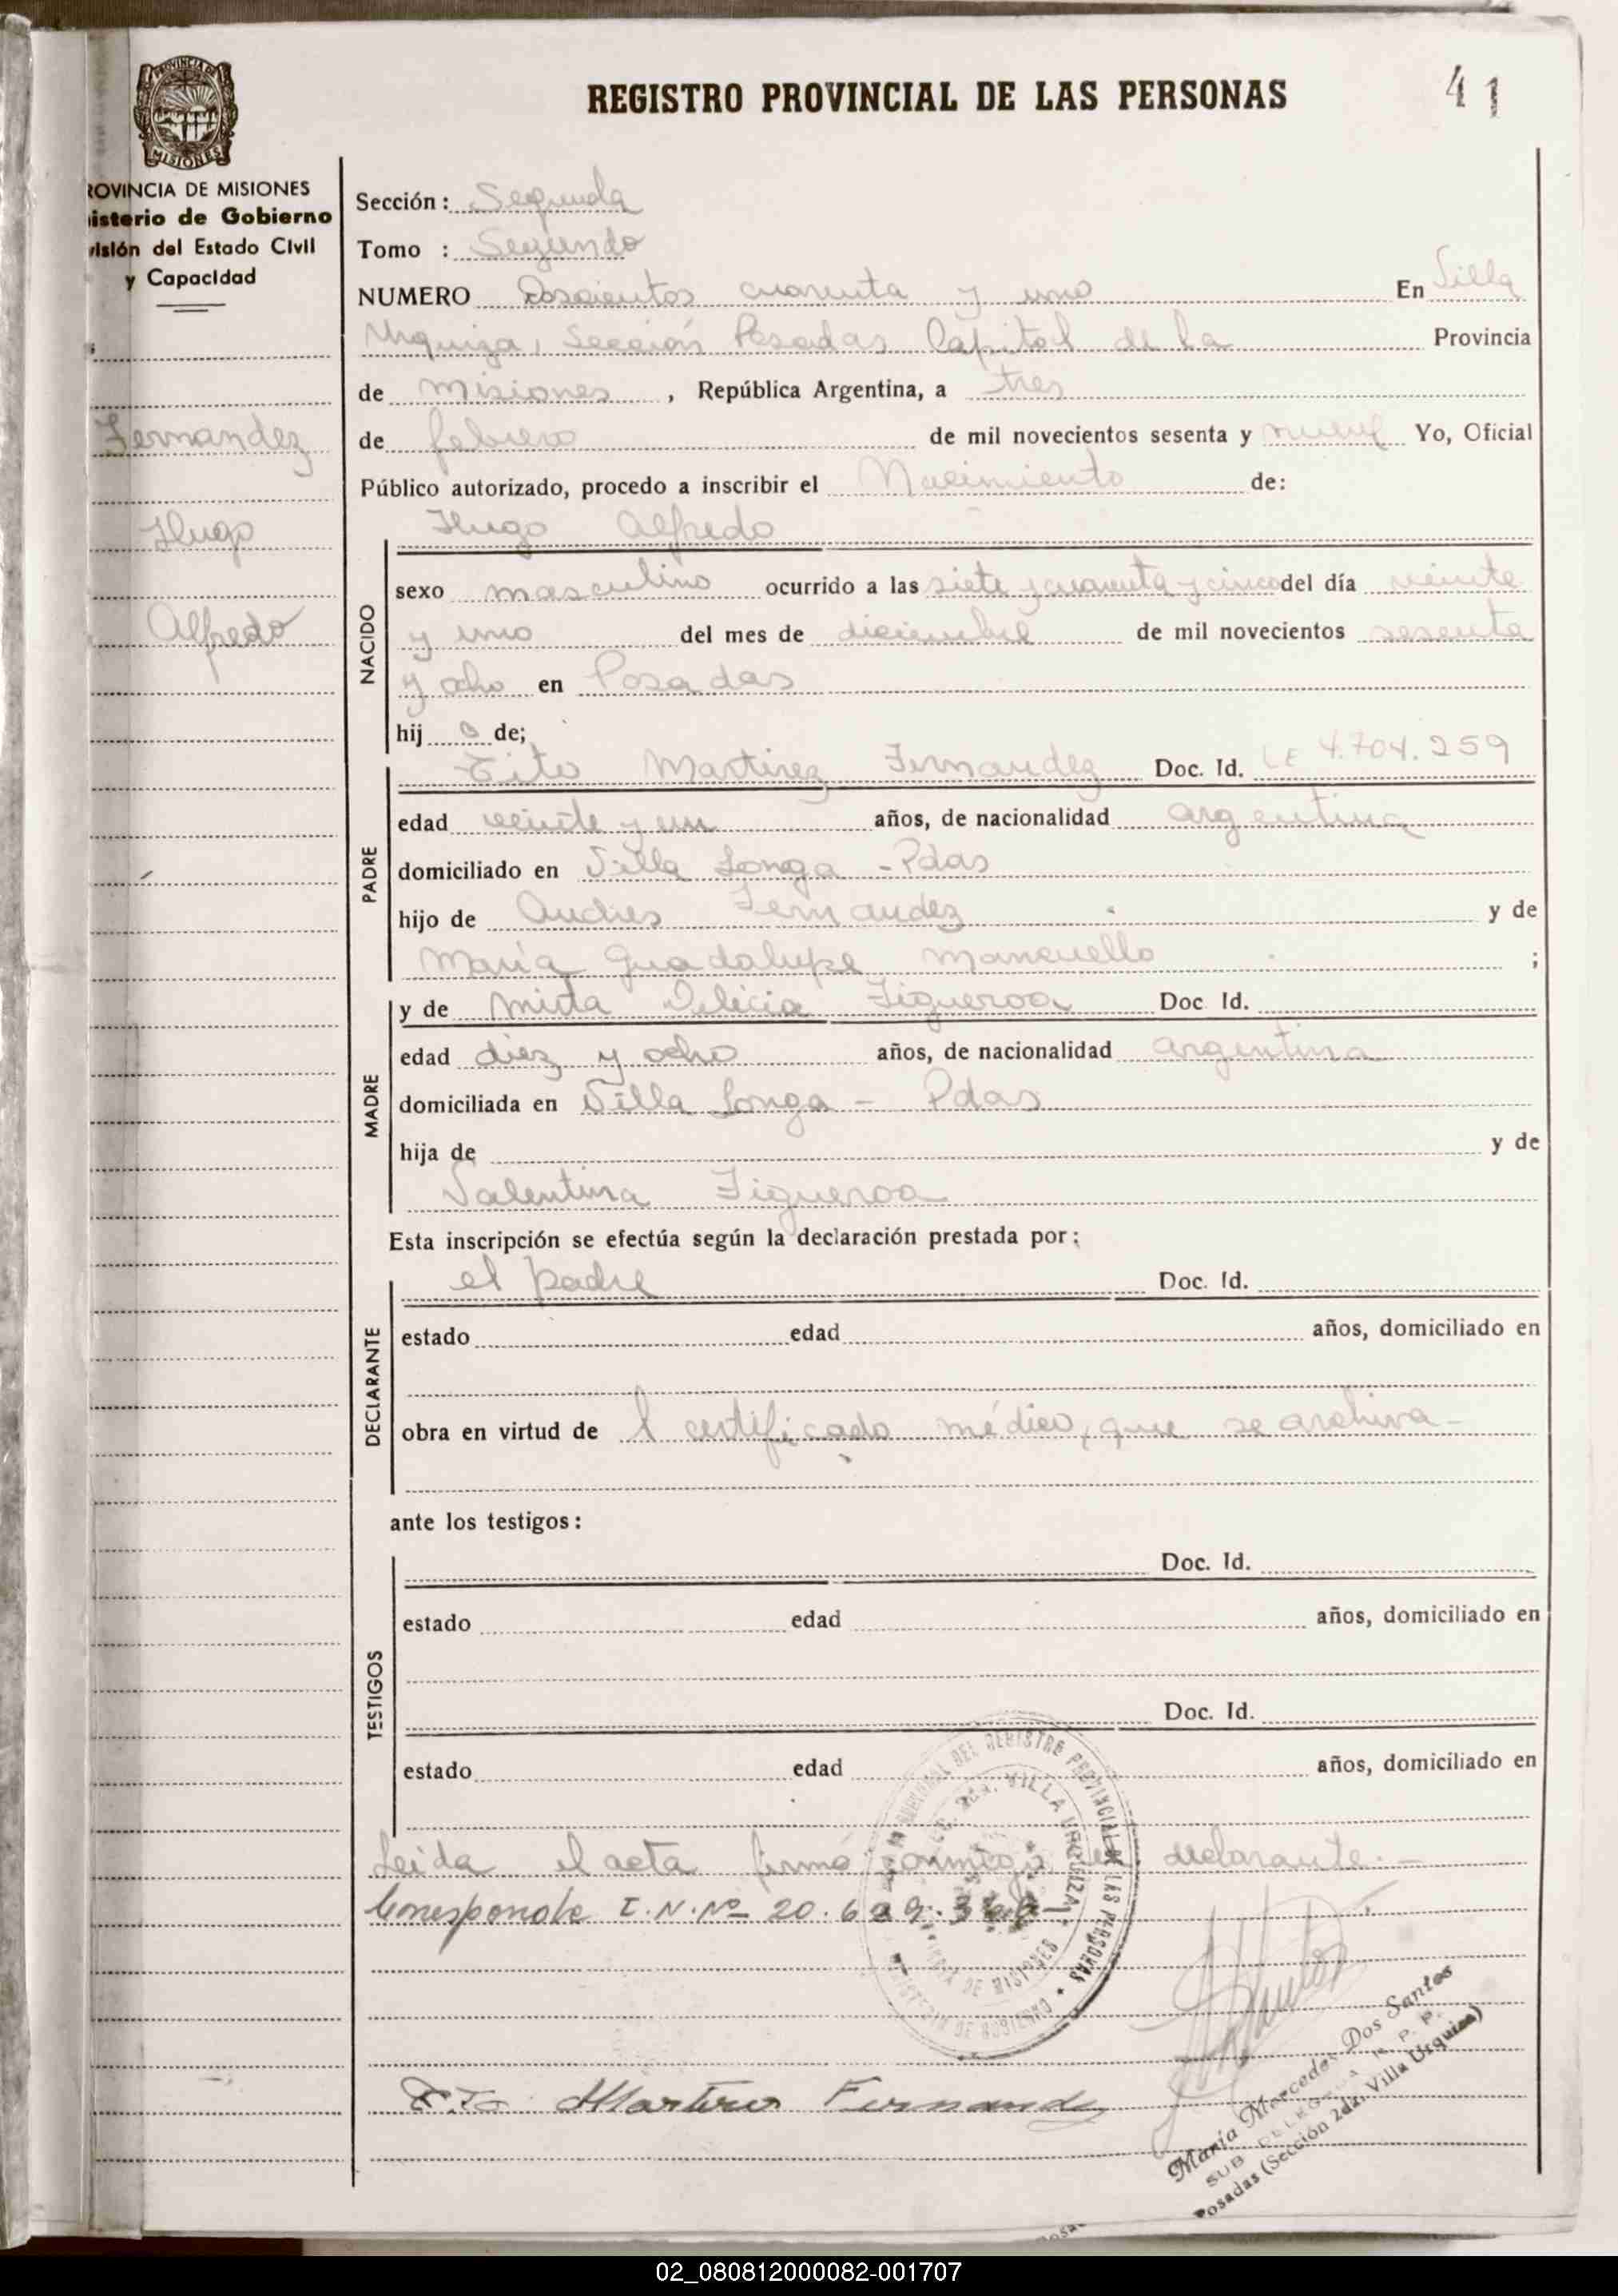 REGISTRO PROVINCIAL DE LAS PERSONAS
41
MISIONES
ROVINCIA DE MISIONES
isterio de Gobierno
visión del Estado Civil
y Capacidad
Fernandez
Hugo
Alfredo
Sección: Segunda
Tomo : Segundo
NUMERO Doscientos cuarenta y uno En Villa
Urquiza, Sección Posadas Capital de la Provincia
de Misiones, República Argentina, a tres
de febrero de mil novecientos sesenta y nueve Yo, Oficial
Público autorizado, procedo a inscribir el Nacimiento de:
NACIDO
Hugo Alfredo
sexo masculino ocurrido a las siete y cuarenta y cinco del día veinte
y uno del mes de diciembre de mil novecientos sesenta
y ocho en Posadas
hij o de;
PADRE
Tito Martirez Fernandez Doc. Id. LE 4.704.259
edad veinte y un años, de nacionalidad argentina
domiciliado en Villa Longa - Pdas
hijo de Andres Fernandez y de
María Guadalupe Mancuello ;
MADRE
y de Mirta Delicia Figueroa Doc Id.
edad diez y ocho años, de nacionalidad argentina
domiciliada en Villa Longa - Pdas
hija de y de
Valentina Figueroa
Esta inscripción se efectúa según la declaración prestada por:
DECLARANTE
el padre Doc. Id.
estado edad años, domiciliado en
obra en virtud de l certificado médico, que se archiva-
ante los testigos:
TESTIGOS
Doc. Id.
estado edad años, domiciliado en
Doc. Id.
estado edad años, domiciliado en
Leida el acta firmó conmigo el declarante.-
Corresponde I.N.Nº 20.6
DEL REGISTRO PROVINCIAL DE LAS PERSONAS
VILLA URQUIZA
DE MISIONES
DE GOBIERNO
Fernandez
María Mercedes Dos Santos
SUB DELEGADA R. P. P.
Posadas (Sección 2da. Villa Urquiza)
02_080812000082-001707